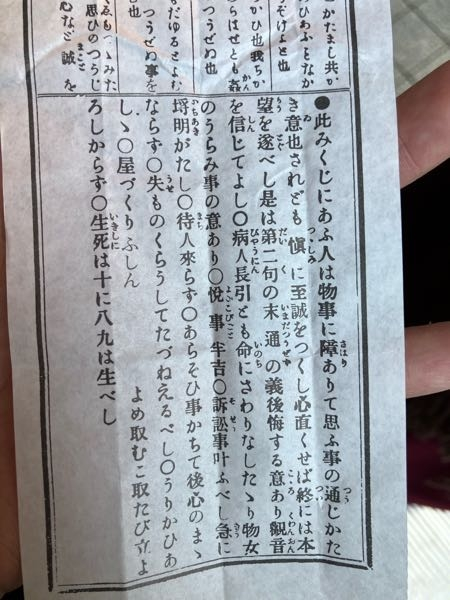 とかたまし共か
のひあふとなか
ぞけよと也
らはせとも姦
つうぜぬ也
もだゆるとよむ
つうぜぬ事を
也
思ひのつうじ
心など誠を
●此みくじにあふ人は物事に障ありて思ふ事の通じかた
き意也されども愼に至誠をつくし心直くせば終には本
望を遂べし是は第二句の末通の義後悔する意あり觀音
を信じてよし〇病人長引とも命にさわりなしたゝり物女
のうらみ事の意あり〇悦事半吉〇訴訟事叶ふべし急に
埓明がたし〇待人來らず〇あらそひ事かちて後心のまゝ
ならず〇失ものくらうしてたづねえるべし〇うりかひあ
しゝ〇屋づくりふしん よめ取むこ取たび立よ
ろしからず〇生死は十に八九は生べし